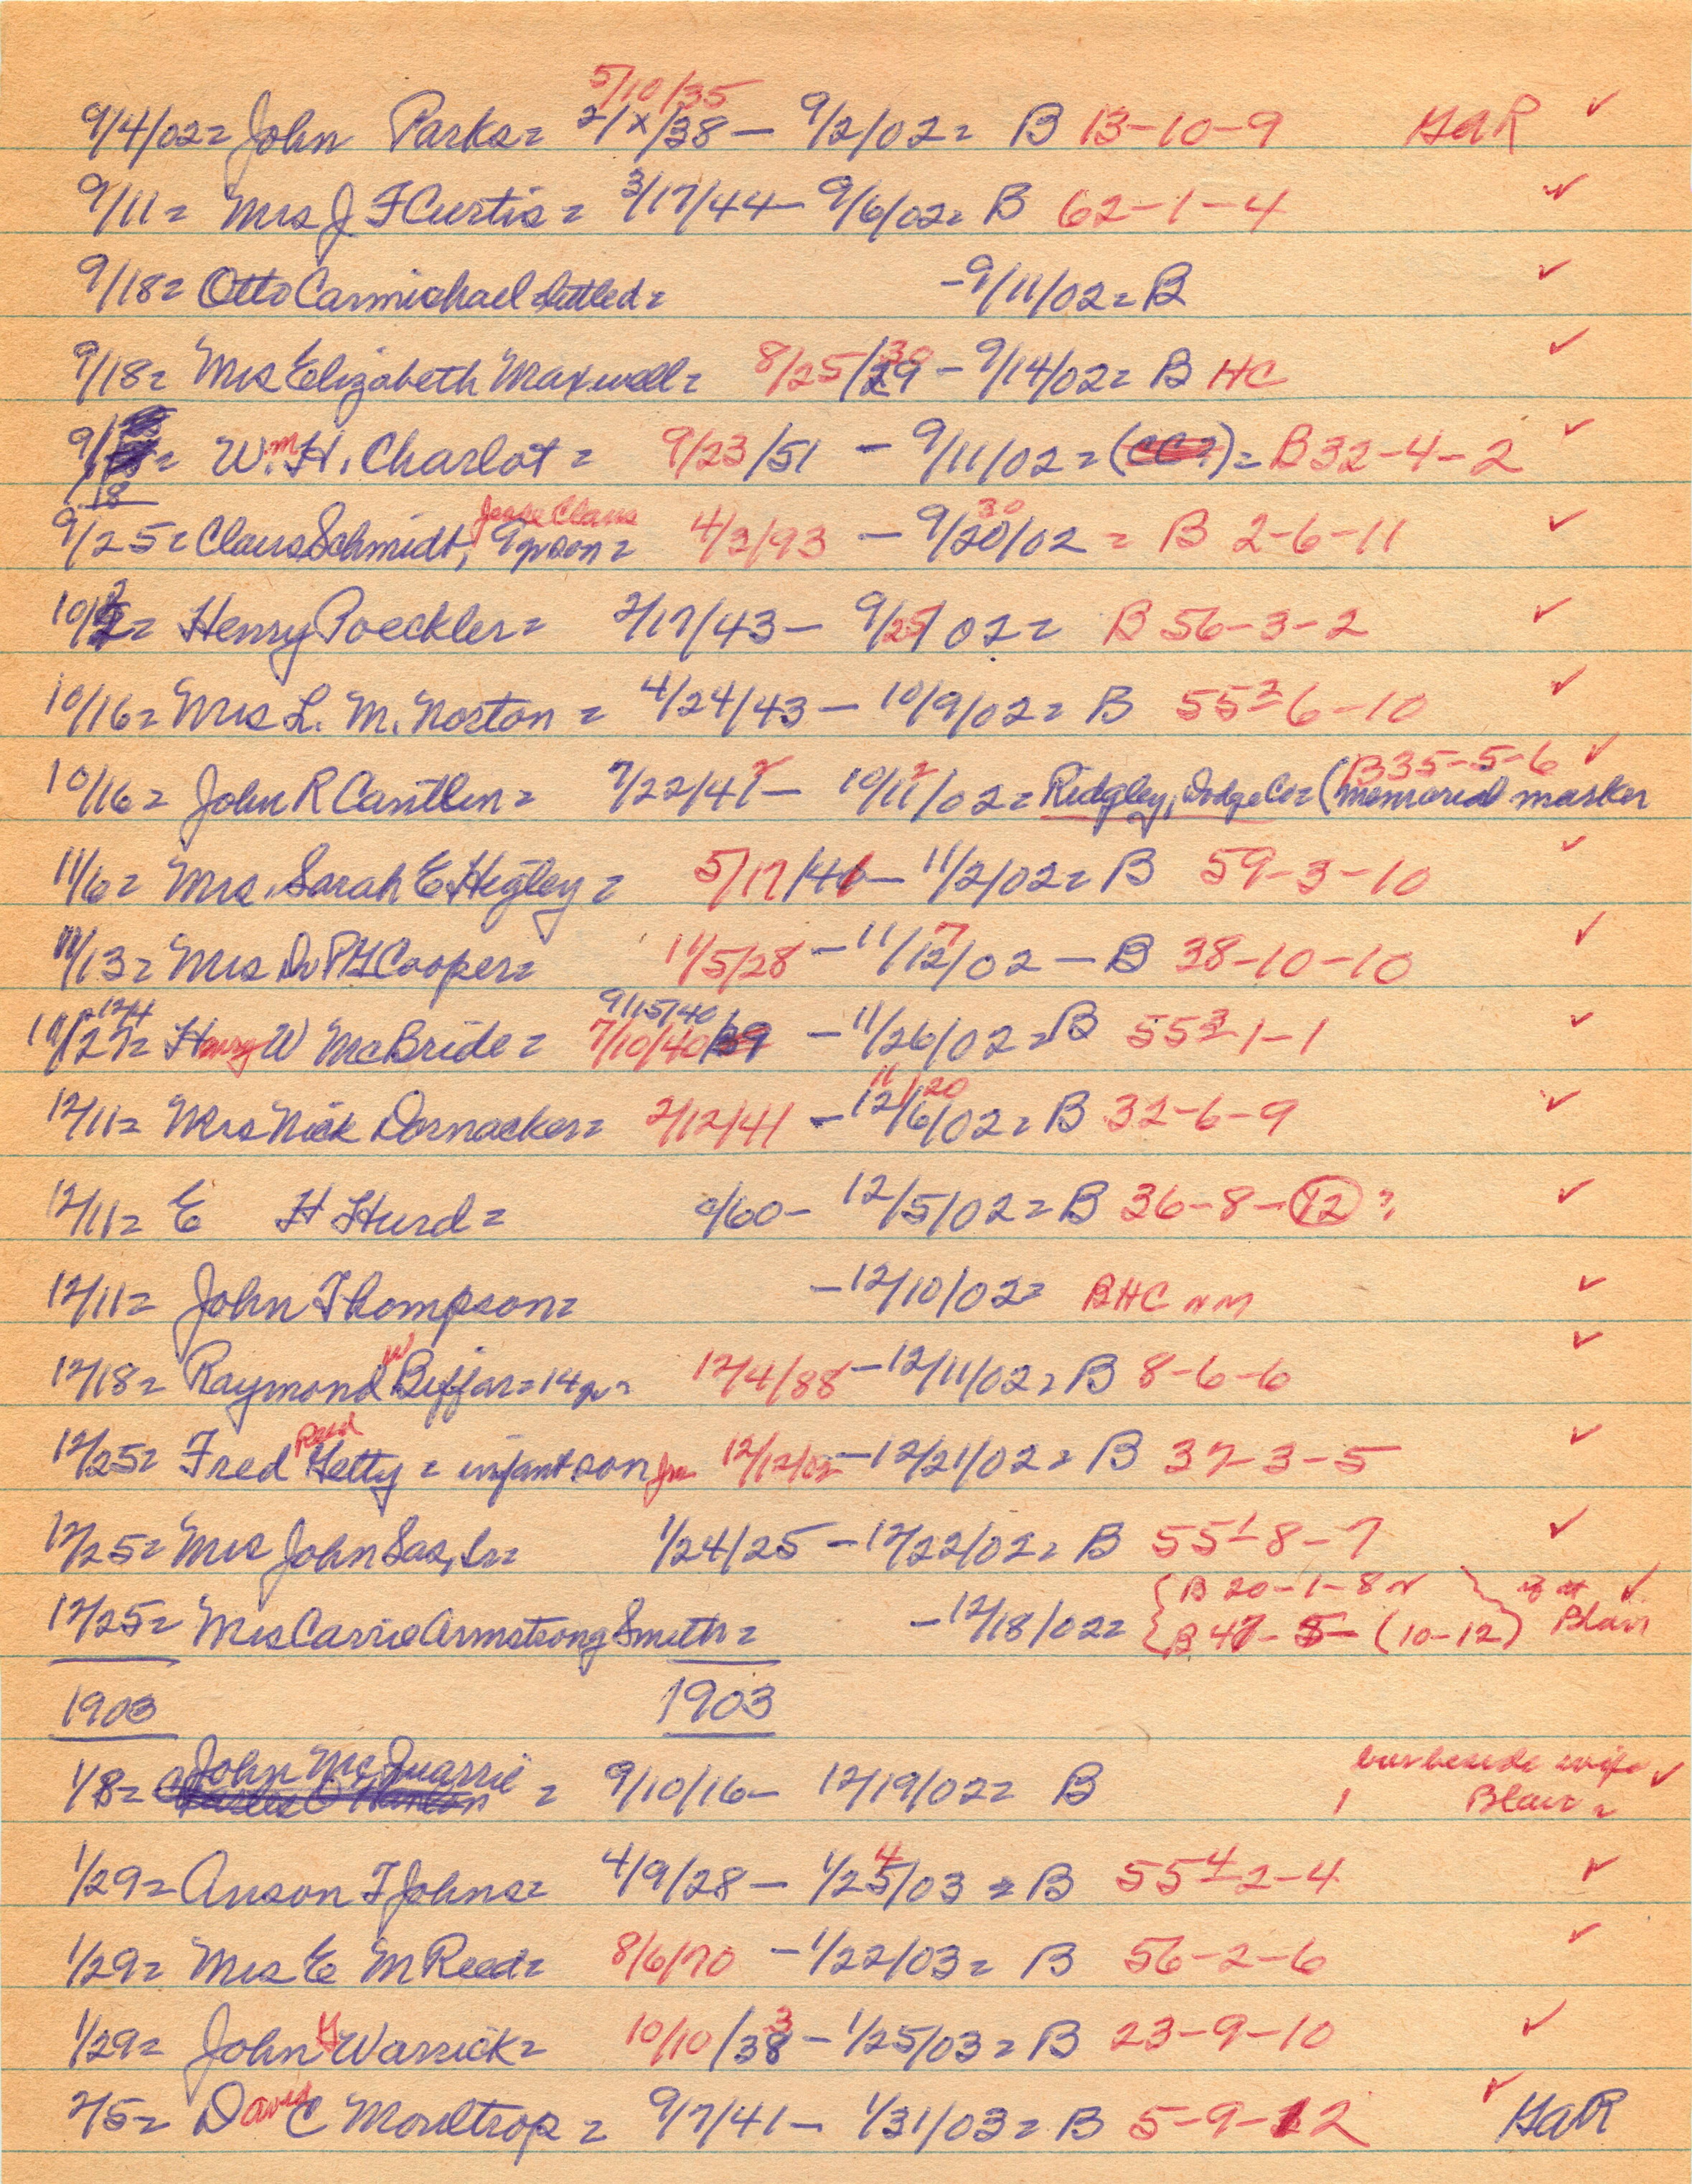 5/10/35
9/4/02= John Parks= 2/x/38 - 9/2/02= B 13-10-9 GAR ✓
9/11= Mrs J F Curtis= 3/17/44- 9/6/02= B 62-1-4 ✓
9/18= Otto Carmichael = -9/11/02= B ✓
9/18= Mrs Elizabeth Maxwell= 8/25/29 30 - 9/14/02= B HC ✓
9/18= Wm. H. Charlot = 9/23/51 - 9/11/02=(CC?)= B 32-4-2 ✓
Jesse Claus 30
9/25= Claus Schmidt, 9 yr son= 4/3/93 - 9/20/02 = B 2-6-11 ✓
10/2= Henry Poeckler= 2/17/43- 9/25/02= B 56-3-2 ✓
10/16= Mrs L. M. Norton = 4/24/43- 10/9/02= B 55²-6-10 ✓
B35-5-6 ✓
10/16= John R Cantlin= 7/22/41 2- 10/11 2/02= Ridgley, Dodge Co= (memorial marker
11/6= Mrs. Sarah E Higley= 5/17/41- 11/2/02= B 59-3-10 ✓
11/13= Mrs Dr PG Cooper= 11/5/28 - 11/12 7/02 - B 38-10-10 ✓
12/4 9/15/40
11/27= Henry W McBride= 7/10/40/39 - 11/26/02= B 55³-1-1 ✓
11/20
12/11= Mrs Nick Dornacker= 2/12/41 - 12/6/02= B 32-6-9 ✓
12/11= E H Hurd= c/60- 12/5/02= B 36-8-(12) ? ✓
12/11= John Thompson= -12/10/02= B HC NM ✓
12/18= Raymond W Biffar=14yr= 12/4/88-12/11/02= B 8-6-6 ✓
Reed
12/25= Fred Hetty = infant son Jr. 12/12/02-12/21/02= B 37-3-5 ✓
12/25= Mrs John Sas, Sr= 1/24/25 - 12/22/02= B 55¹-8-7 ✓
{B 20-1-8 } if at ✓
12/25= Mrs Carrie Armstrong Smith= -12/18/02= {B 47-5-(10-12) Blair
1903 1903
John McQuarrie bur beside wife ✓
1/8= = 9/10/16- 12/19/02= B Blair
1/29= Anson F Johns= 4/9/28- 1/25 4/03 = B 55⁴-2-4 ✓
1/29= Mrs E M Reed= 8/6/70 -1/22/03= B 56-2-6 ✓
1/29= John G Warrick= 10/10/38 3-1/25/03= B 23-9-10 ✓
2/5= David C Moultrop= 9/7/41- 1/31/03= B 5-9-12 ✓ GAR